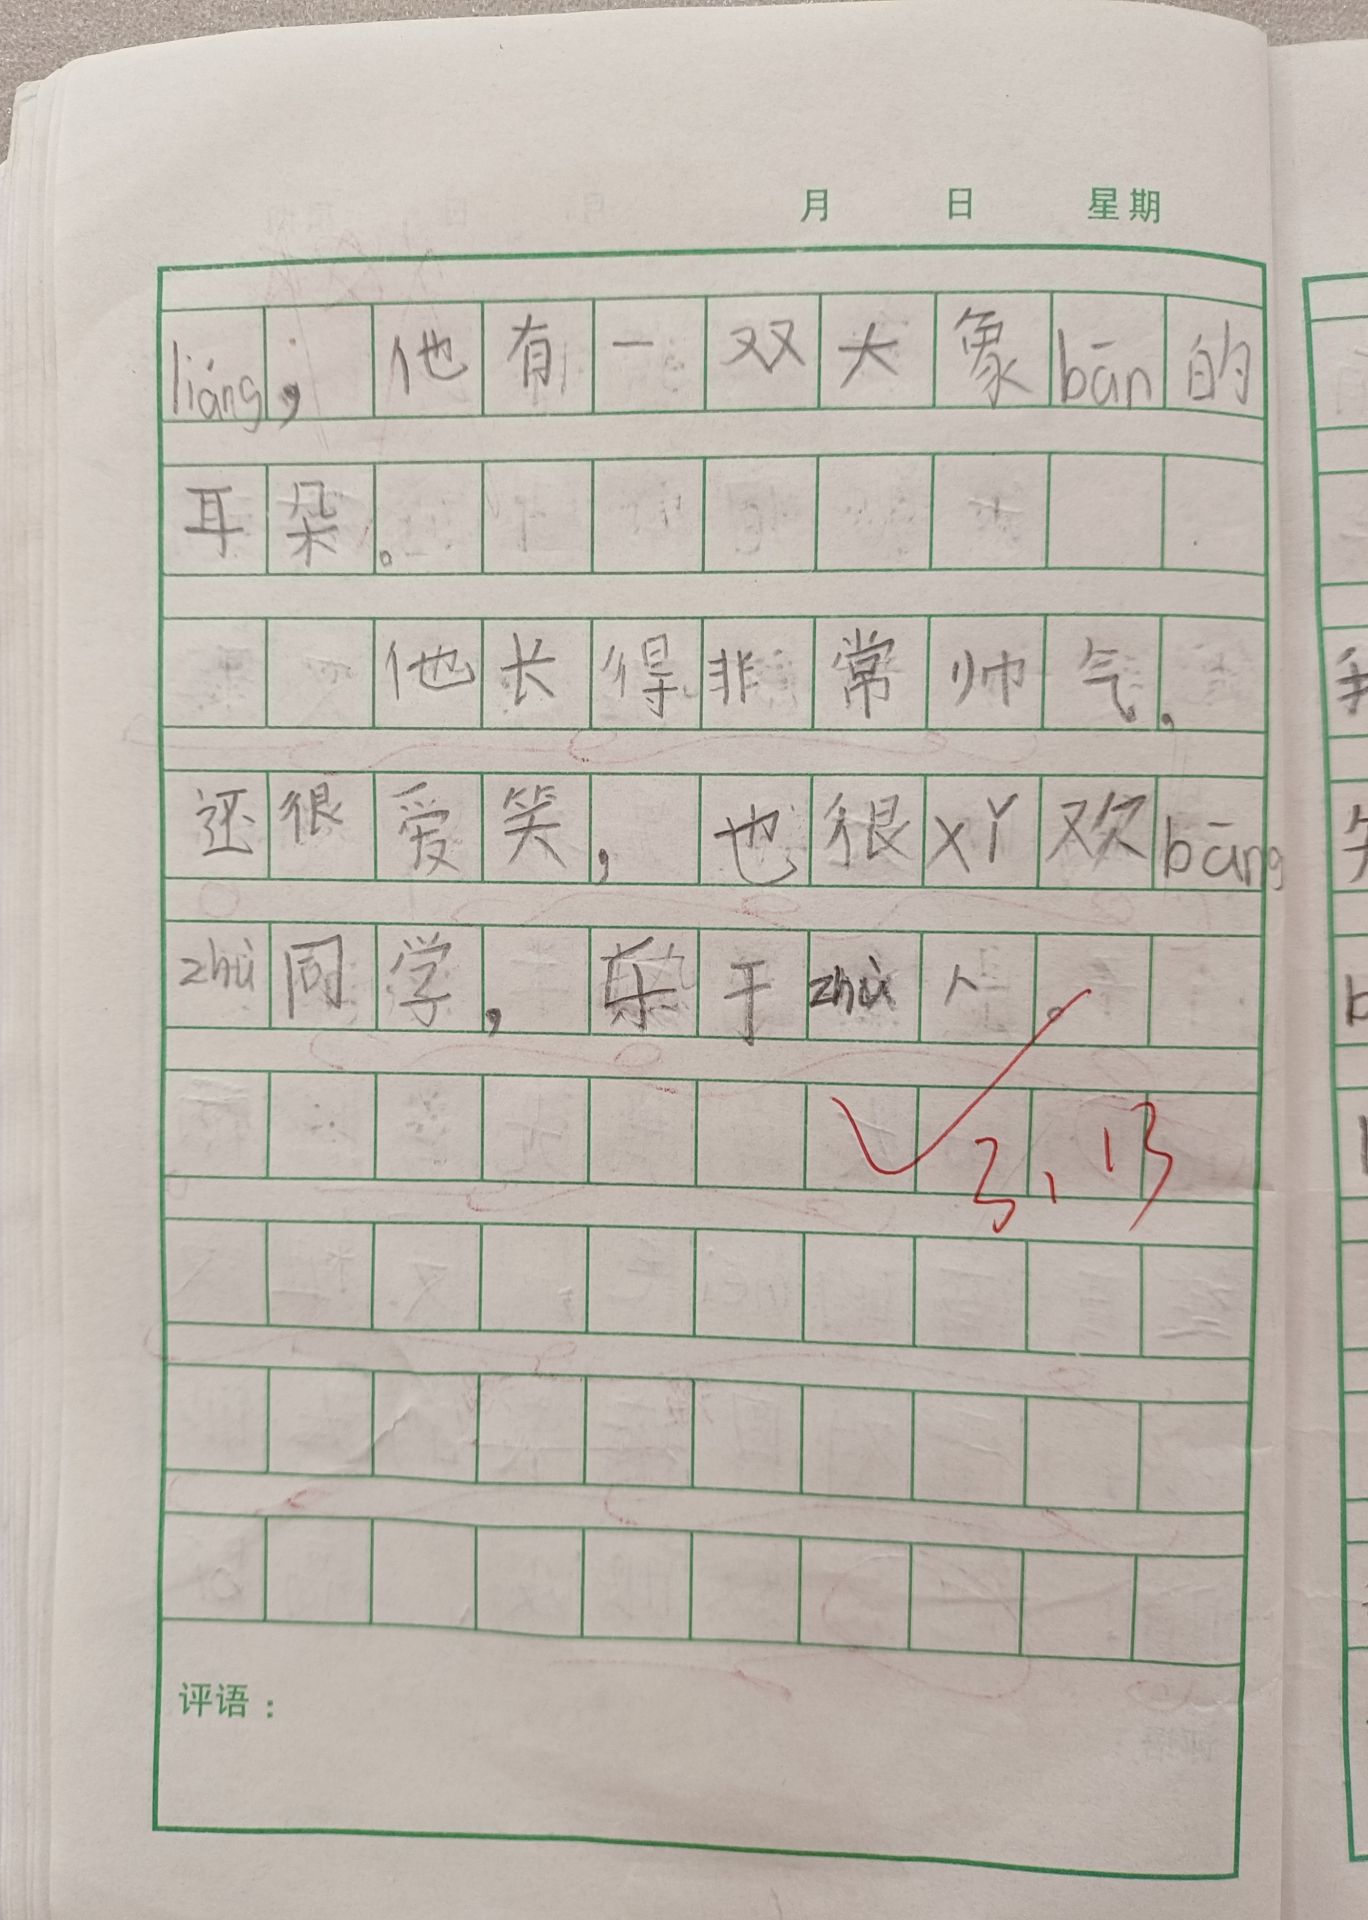 月 日 星期
liáng，他有一双大象bān的
耳朵。
他长得非常帅气，
还很爱笑，也很xǐ欢bāng
zhù同学，乐于zhù人。
3.13
评语：